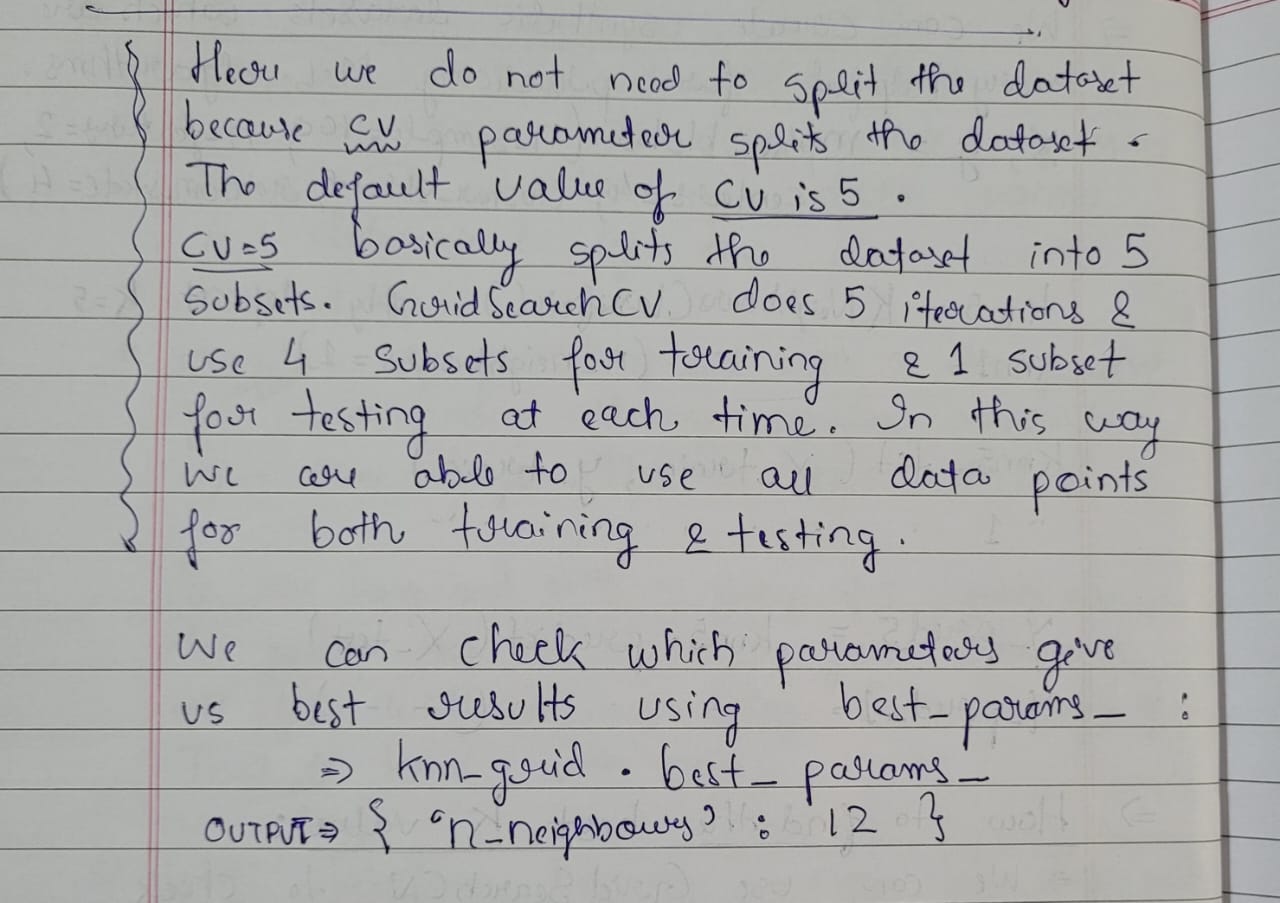 Here we do not need to split the dataset
because cv parameter splits the dataset.
The default value of cv is 5.
CV=5 basically splits the dataset into 5
subsets. GridSearchCV does 5 iterations &
use 4 subsets for training & 1 subset
for testing at each time. In this way
we are able to use all data points
for both training & testing.
We can check which parameters give
us best results using best_params_ :
⇒ knn_grid . best_params_
OUTPUT ⇒ { 'n_neighbours' : 12 }